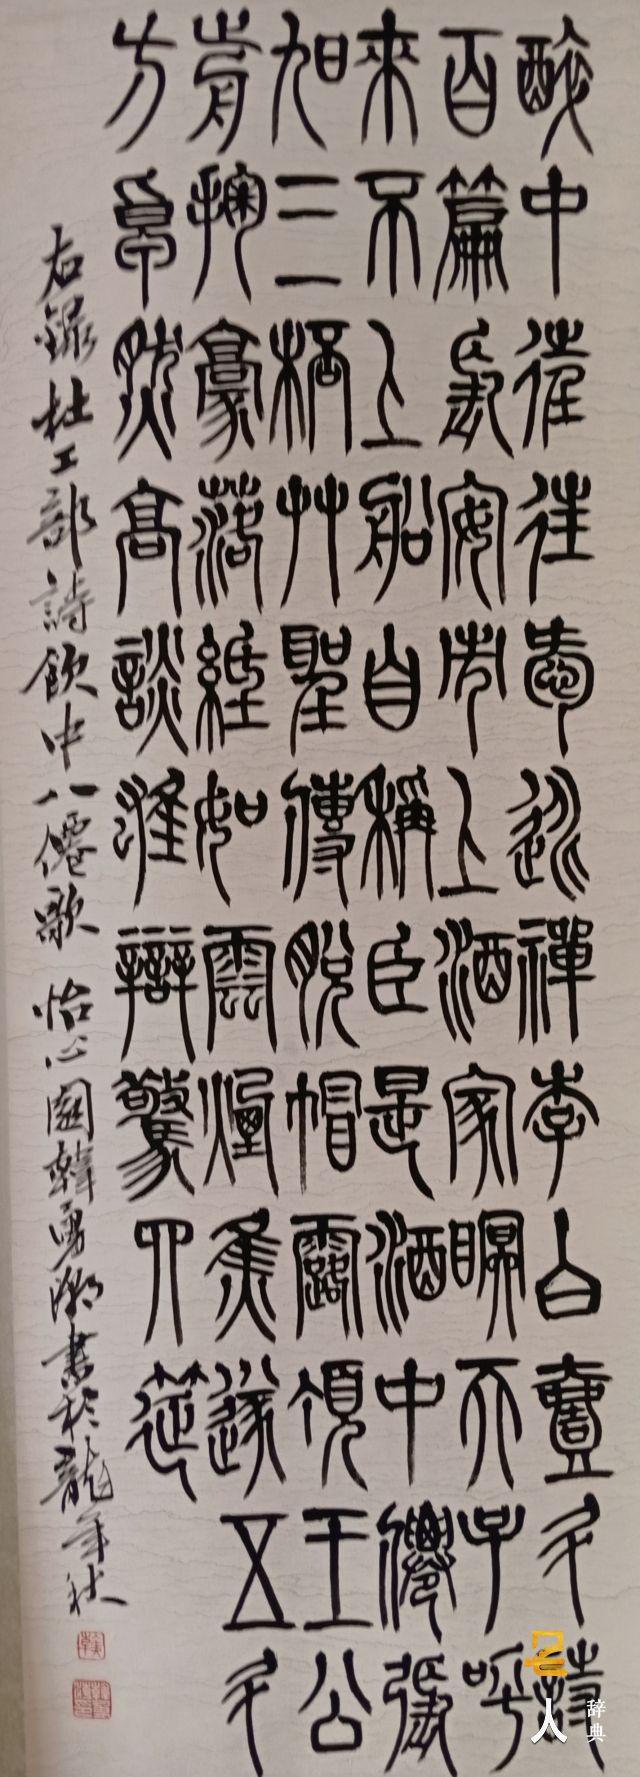 醉中往往愛逃禪李白壹斗詩
百篇長安市上酒家眠天子呼
來不上船自稱臣是酒中僊張
旭三桮艸聖傳脫帽露頂王公
歬揮豪落紙如雲煙焦遂五斗
方卓然高談雄辯驚四筵
右錄杜工部詩飲中八僊歌 怡心園韓勇潮書於龍年秋
名人辞典